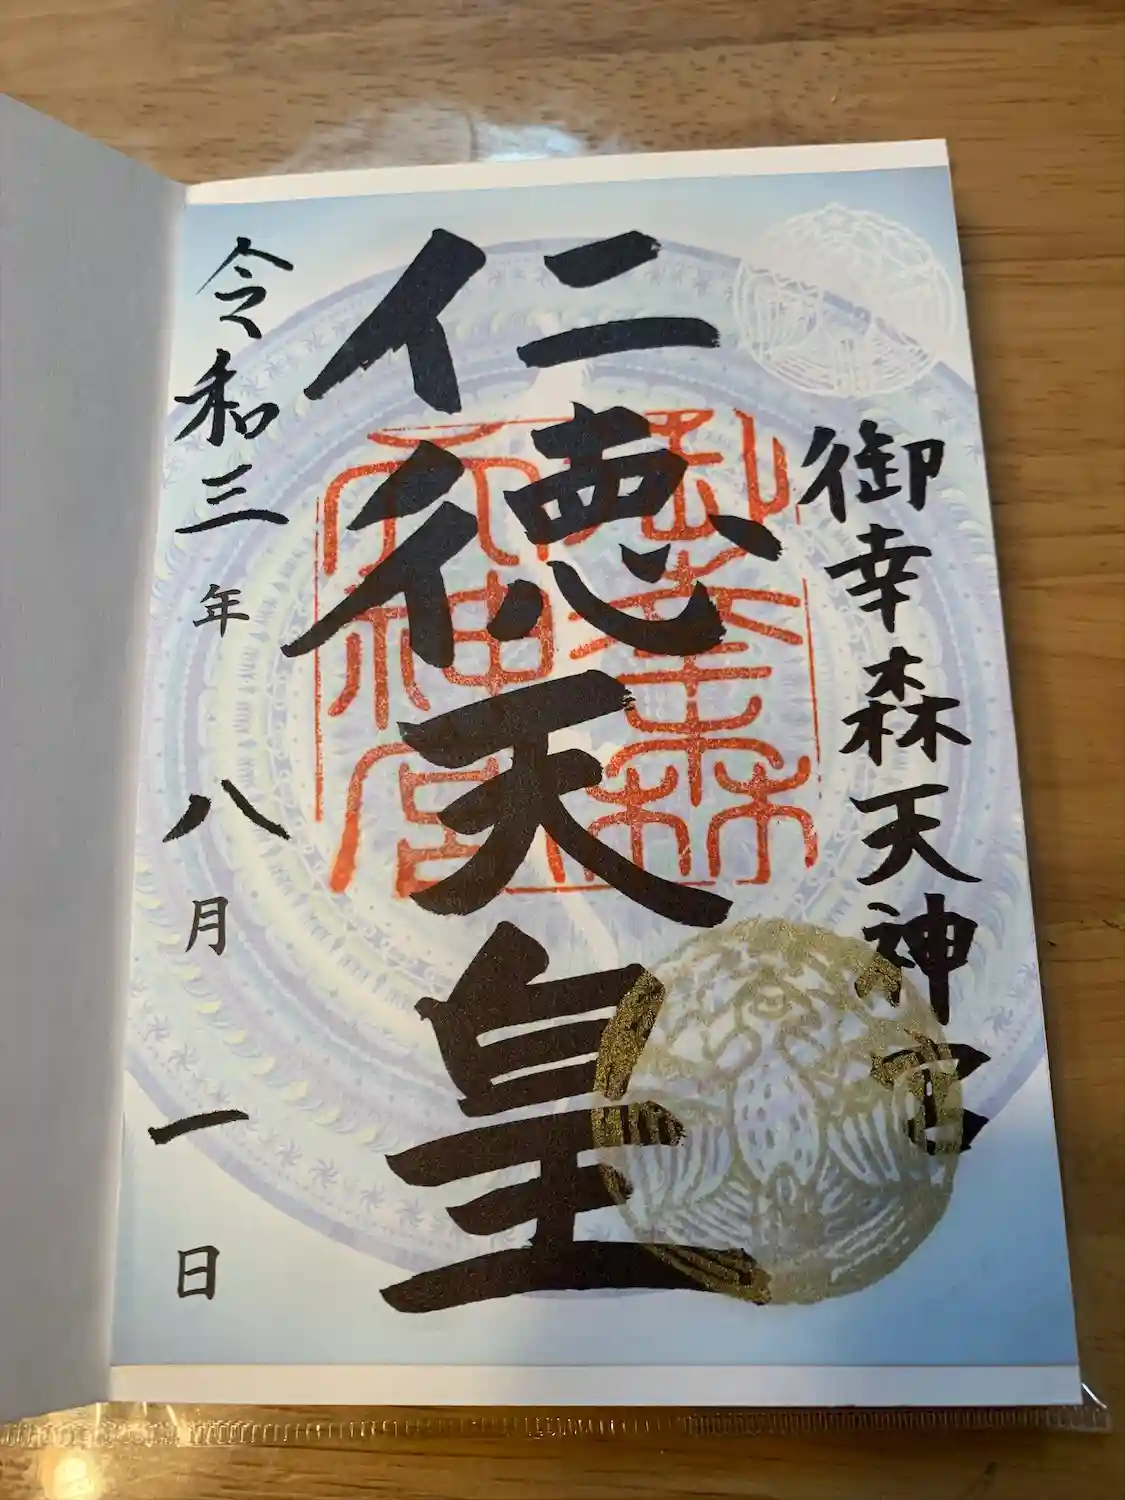 御幸森天神宮
仁徳天皇
御幸森
天神宮
令和三年八月一日